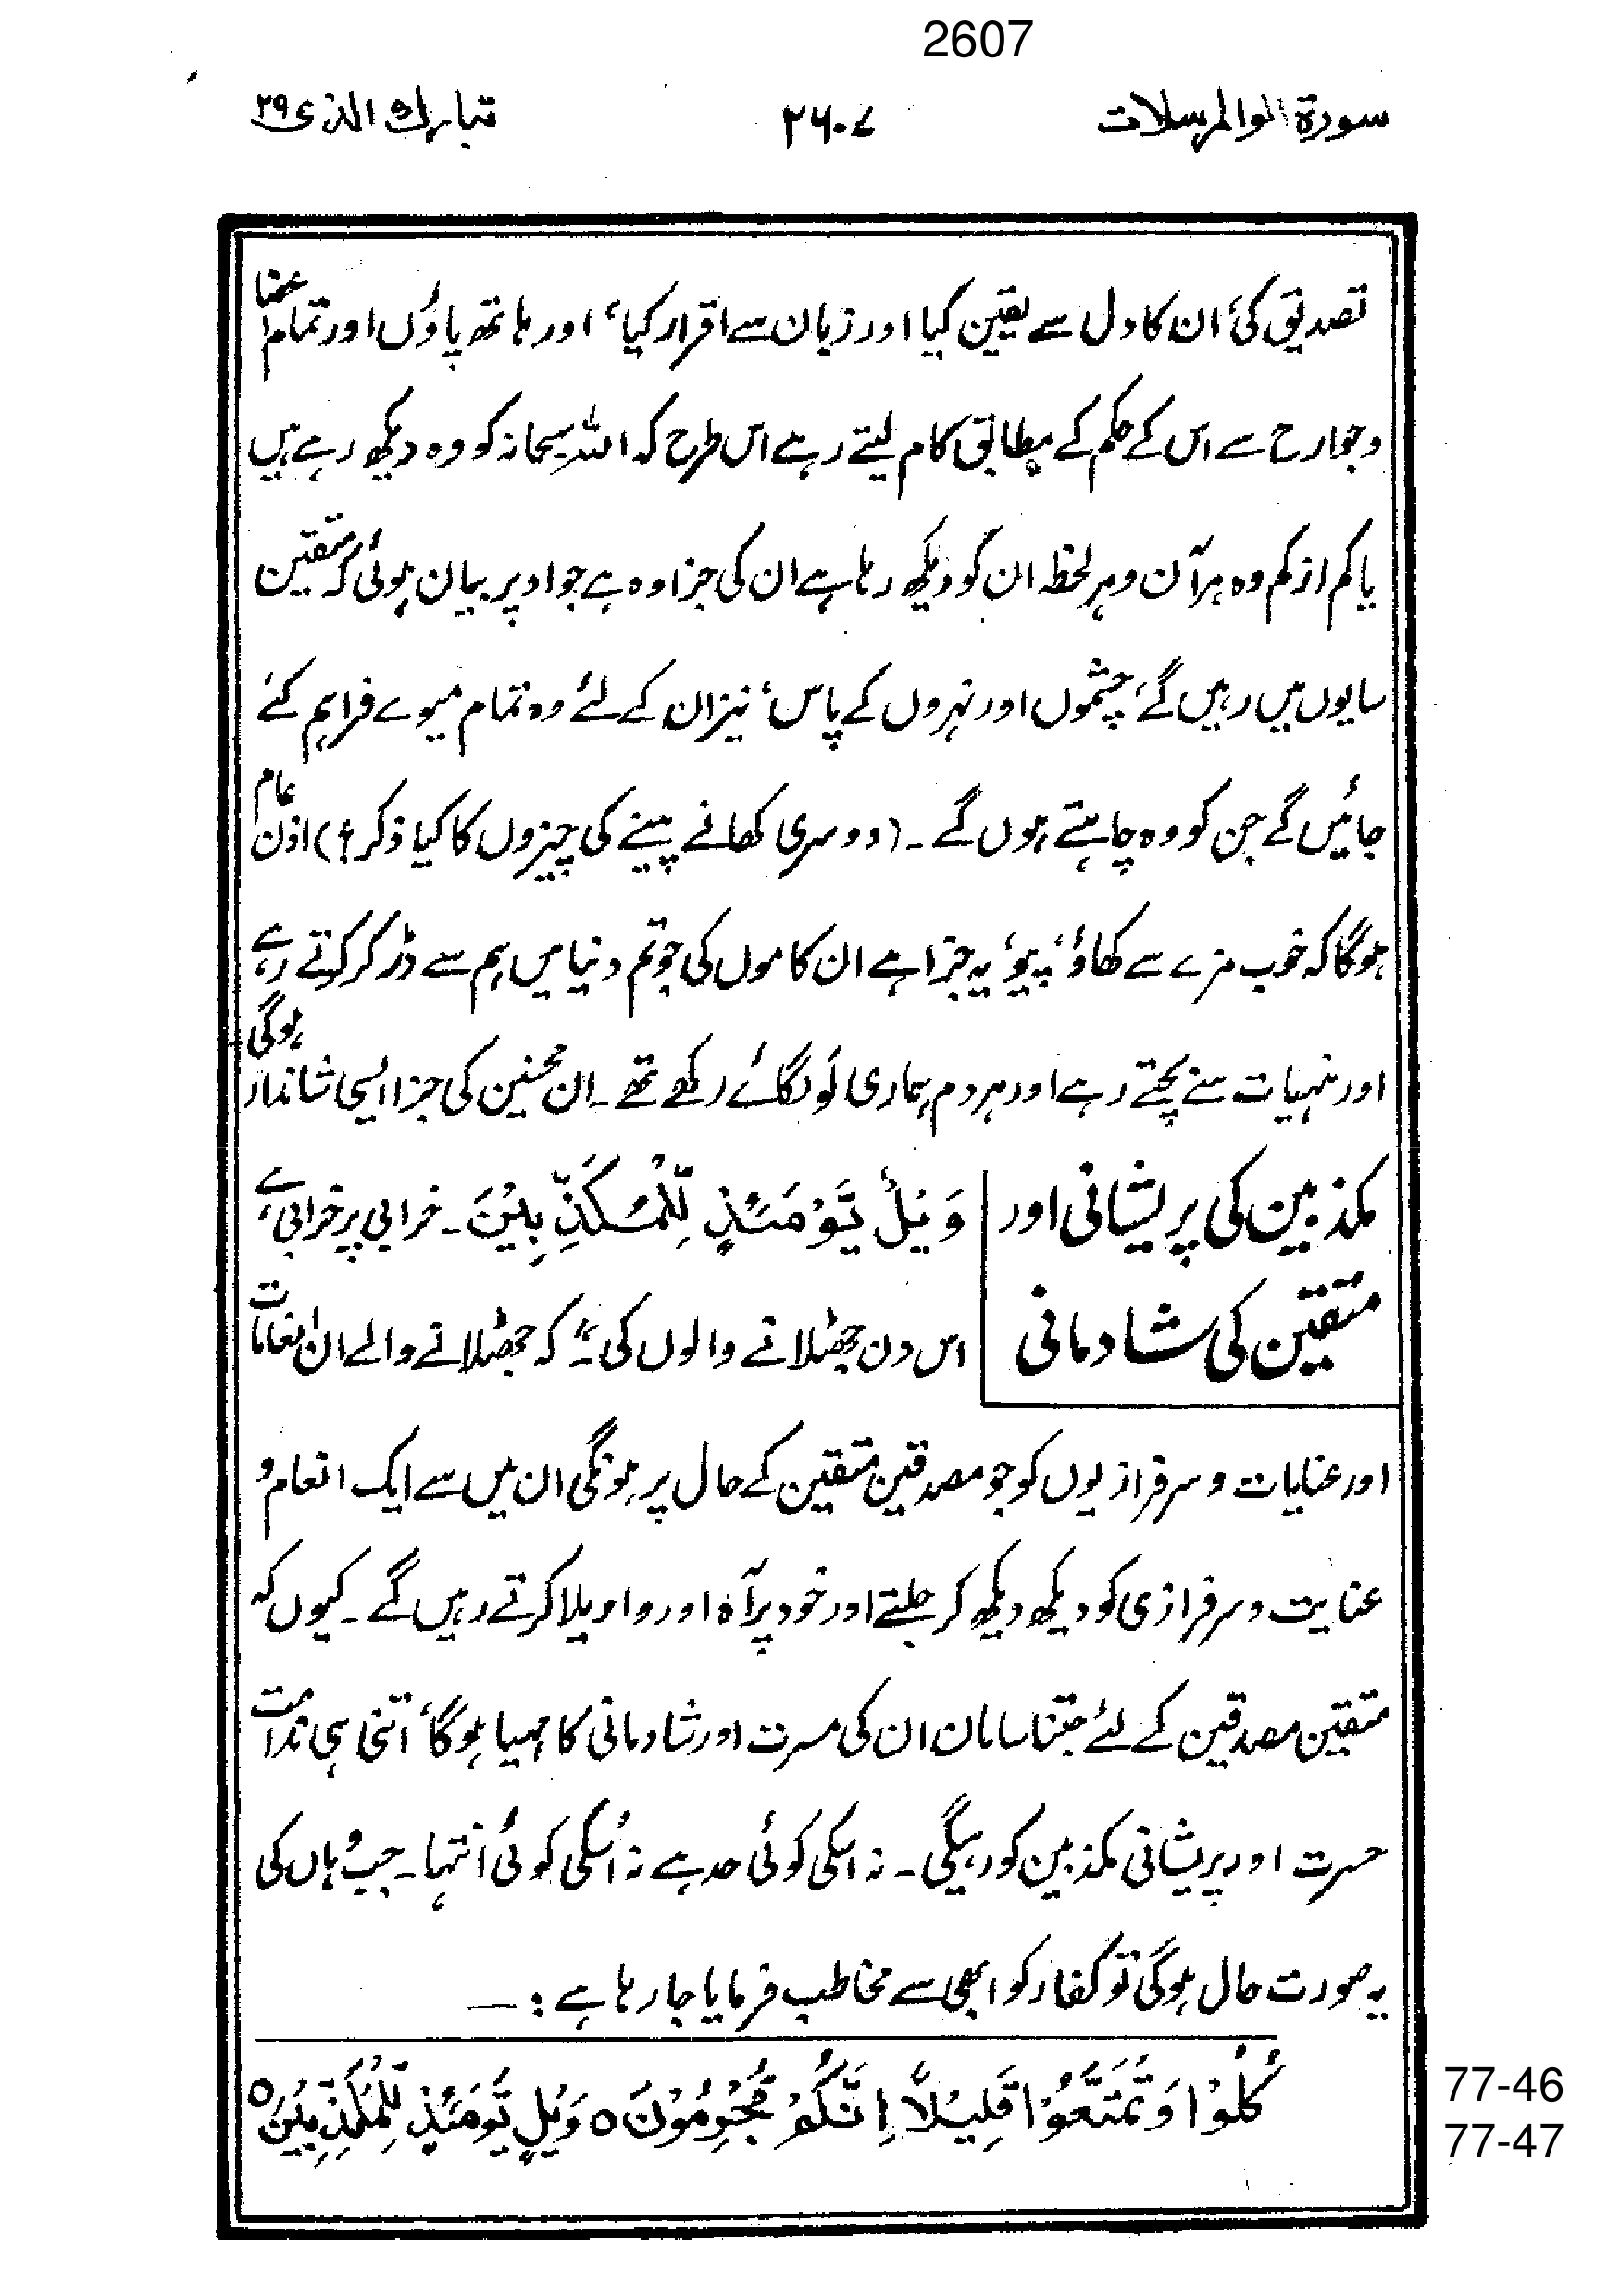 2607
سورۃ والمرسلات ۲۶۰۷ تبارك الذی ۲۹
تصدیق کی، ان کا دل سے یقین کیا اور زبان سے اقرار کیا، اور ہاتھ پاؤں اور تمام اعضا
و جوارح سے اس کے حکم کے مطابق کام لیتے رہے اس طرح کہ اللہ سبحانہ کو وہ دیکھ رہے ہیں
یا کم از کم وہ ہر آن و ہر لحظہ ان کو دیکھ رہا ہے ان کی جزا وہ ہے جو اوپر بیان ہوئی کہ متقین
سایوں میں رہیں گے، چشموں اور نہروں کے پاس، نیز ان کے لئے وہ تمام میوے فراہم کئے
جائیں گے جن کو وہ چاہتے ہوں گے ۔ (دوسری کھانے پینے کی چیزوں کا کیا ذکر؟) اذن عام
ہوگا کہ خوب مزے سے کھاؤ، پیو، یہ جزا ہے ان کاموں کی جو تم دنیا میں ہم سے ڈر کر کرتے رہے
اور منہیات سے بچتے رہے اور ہر دم ہماری لَو لگائے رکھے تھے ۔ ان محسنین کی جزا ایسی شاندار ہوگی ۔
مکذبین کی پریشانی اور
متقین کی شادمانی
وَيْلٌ يَّوْمَئِذٍ لِّلْمُكَذِّبِيْنَ ۔ خرابی پر خرابی ہے
اس دن جھٹلانے والوں کی ؂ کہ جھٹلانے والے ان انعامات
اور عنایات و سرفرازیوں کو جو مصدقین متقین کے حال پر ہونگی ان میں سے ایک انعام و
عنایت و سرفرازی کو دیکھ دیکھ کر جلتے اور خود پر آہ اور واویلا کرتے رہیں گے ۔ کیوں کہ
متقین مصدقین کے لئے جتنا سامان ان کی مسرت اور شادمانی کا مہیا ہوگا، اتنی ہی ندامت
حسرت اور پریشانی مکذبین کو رہیگی ۔ نہ اسکی کوئی حد ہے نہ اُسکی کوئی انتہا ۔ جب وہاں کی
یہ صورت حال ہوگی تو کفار کو ابھی سے مخاطب فرمایا جا رہا ہے : —
كُلُوْا وَتَمَتَّعُوْا قَلِيْلًا اِنَّكُمْ مُّجْرِمُوْنَ ٥ وَيْلٌ يَّوْمَئِذٍ لِّلْمُكَذِّبِيْنَ ٥
77-46
77-47